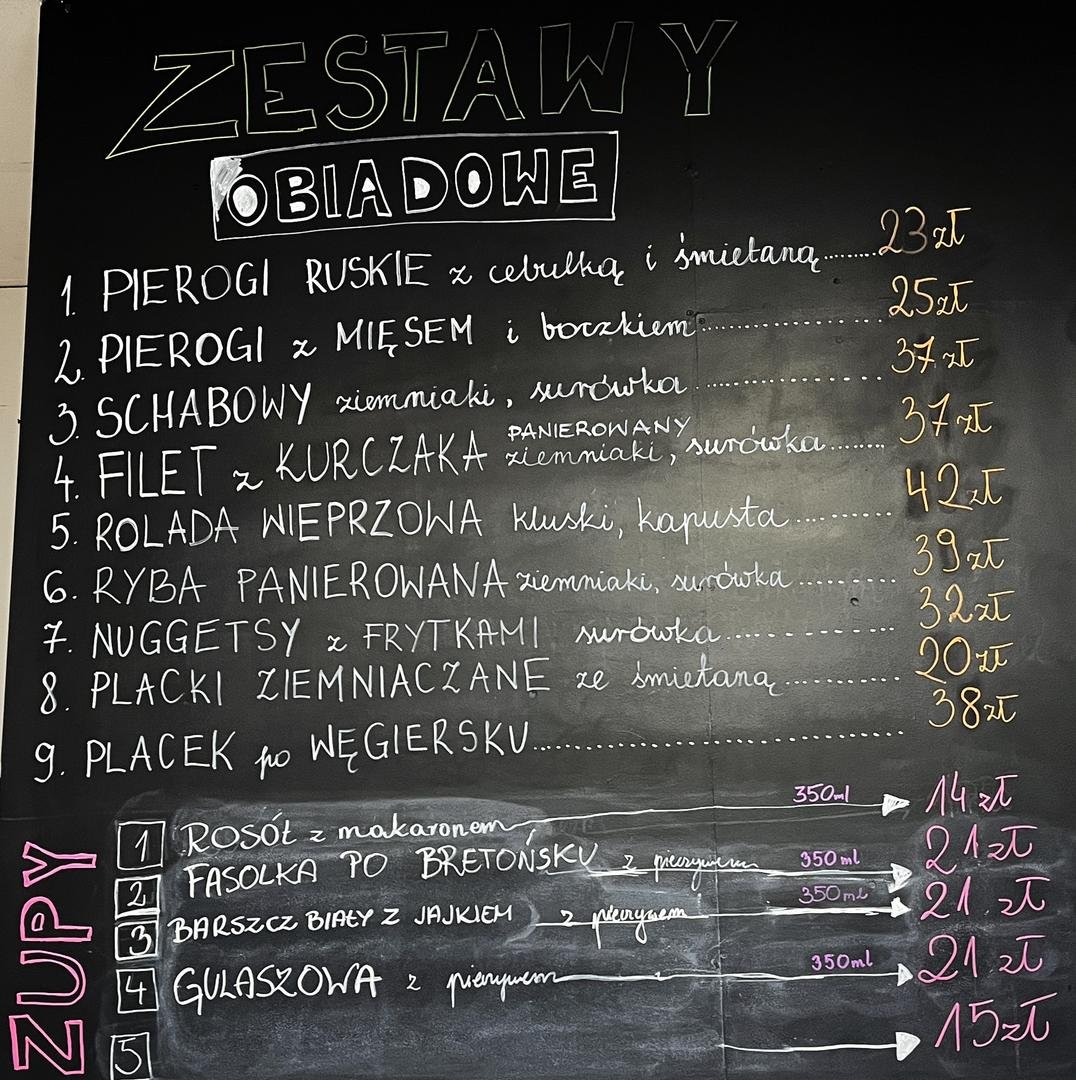 ZESTAWY
OBIADOWE
1. PIEROGI RUSKIE z cebulką i śmietaną........23zł
2. PIEROGI z MIĘSEM i boczkiem..................25zł
3. SCHABOWY ziemniaki, surówka..................37zł
4. FILET z KURCZAKA PANIEROWANY ziemniaki, surówka.......37zł
5. ROLADA WIEPRZOWA kluski, kapusta............42zł
6. RYBA PANIEROWANA ziemniaki, surówka..........39zł
7. NUGGETSY z FRYTKAMI surówka..................32zł
8. PLACKI ZIEMNIACZANE ze śmietaną.............20zł
9. PLACEK po WĘGIERSKU..............................38zł
ZUPY
1 ROSÓŁ z makaronem 350ml 14zł
2 FASOLKA PO BRETOŃSKU z pieczywem 350ml 21zł
3 BARSZCZ BIAŁY Z JAJKIEM z pieczywem 350ml 21zł
4 GULASZOWA z pieczywem 350ml 21zł
5 15zł